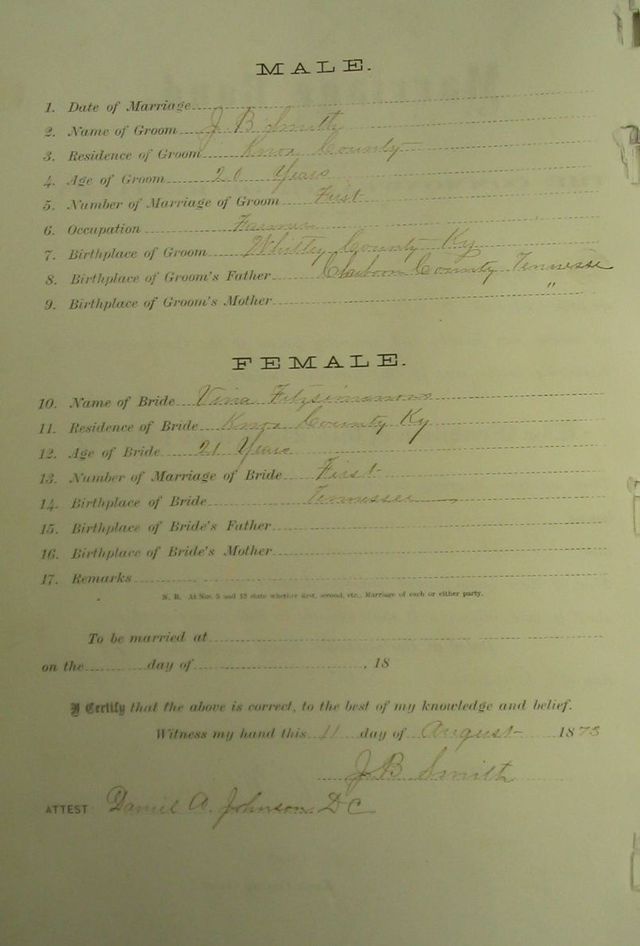 MALE.
1. Date of Marriage
2. Name of Groom J B Smith
3. Residence of Groom Knox County
4. Age of Groom 20 Years
5. Number of Marriage of Groom First
6. Occupation Farmer
7. Birthplace of Groom Whitley County Ky
8. Birthplace of Groom's Father Claiborn County Tennesse
9. Birthplace of Groom's Mother "
FEMALE.
10. Name of Bride Vina Fitzsimmons
11. Residence of Bride Knox County Ky
12. Age of Bride 21 Years
13. Number of Marriage of Bride First
14. Birthplace of Bride Tennessee
15. Birthplace of Bride's Father
16. Birthplace of Bride's Mother
17. Remarks
N. B. At Nos. 5 and 13 state whether first, second, etc., Marriage of each or either party.
To be married at
on the day of , 18
I Certify that the above is correct, to the best of my knowledge and belief.
Witness my hand this 11 day of August 1875
J B Smith
ATTEST Daniel A. Johnson DC